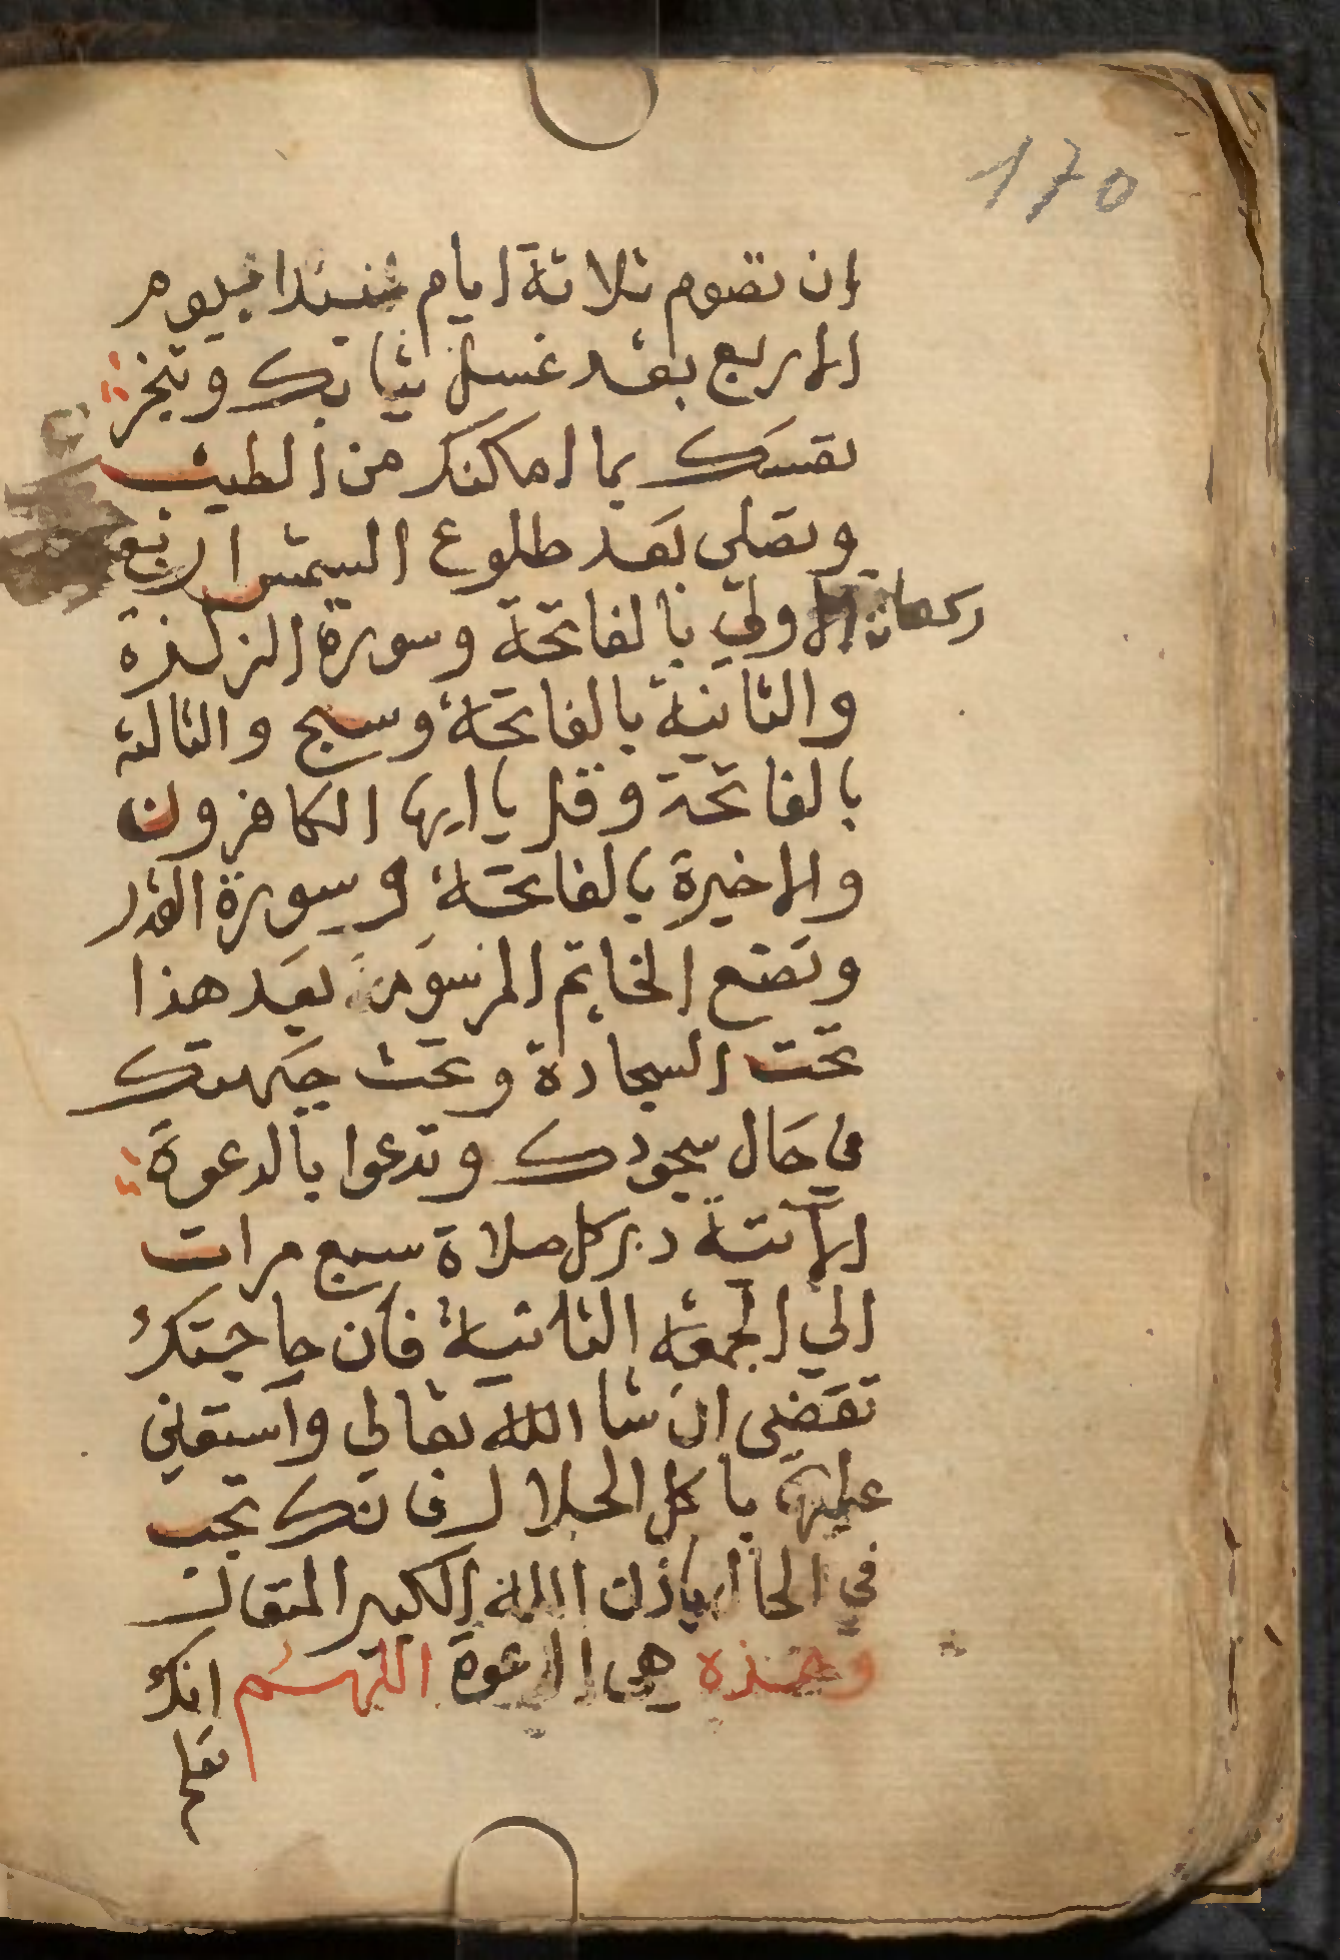 170
ان تصوم ثلاثة ايام تبتدا بيوم
الاربع بعد غسل ثيابك وتبخر
نفسك بما امكنك من الطيب
وتصلي بعد طلوع الشمس اربع
ركعات الاولي بالفاتحة وسورة الزلزلة
والثانية بالفاتحة وسبح والثالثة
بالفاتحة وقل يا ايها الكافرون
والاخيرة بالفاتحة وسورة القدر
وتضع الخاتم المرسوم بعد هذا
تحت السجادة وتحت جبهتك
في حال سجودك وتدعوا بالدعوة
الاتية دبر كل صلاة سبع مرات
الي الجمعة الثانية فان حاجتك
تقضي ان شا الله تعالي واستعين
عليها باكل الحلال فانك تجب
في الحال باذن الله الكبير المتعال
وهذه هي الدعوة اللهم انك